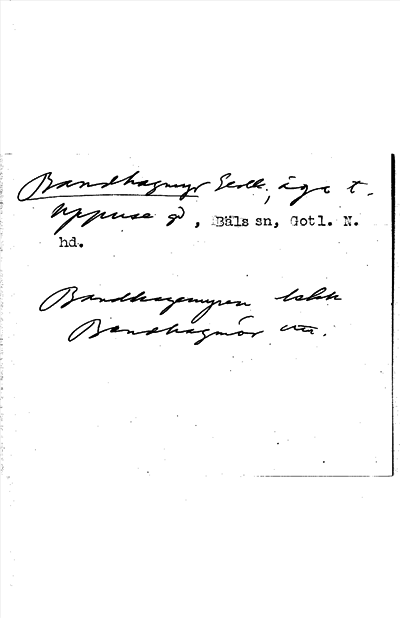 Bandhagmyr Seck, äga t.
Uppuse gd, Bäls sn, Gotl. N.
hd.
Bandhagemyren
Bandhagmör